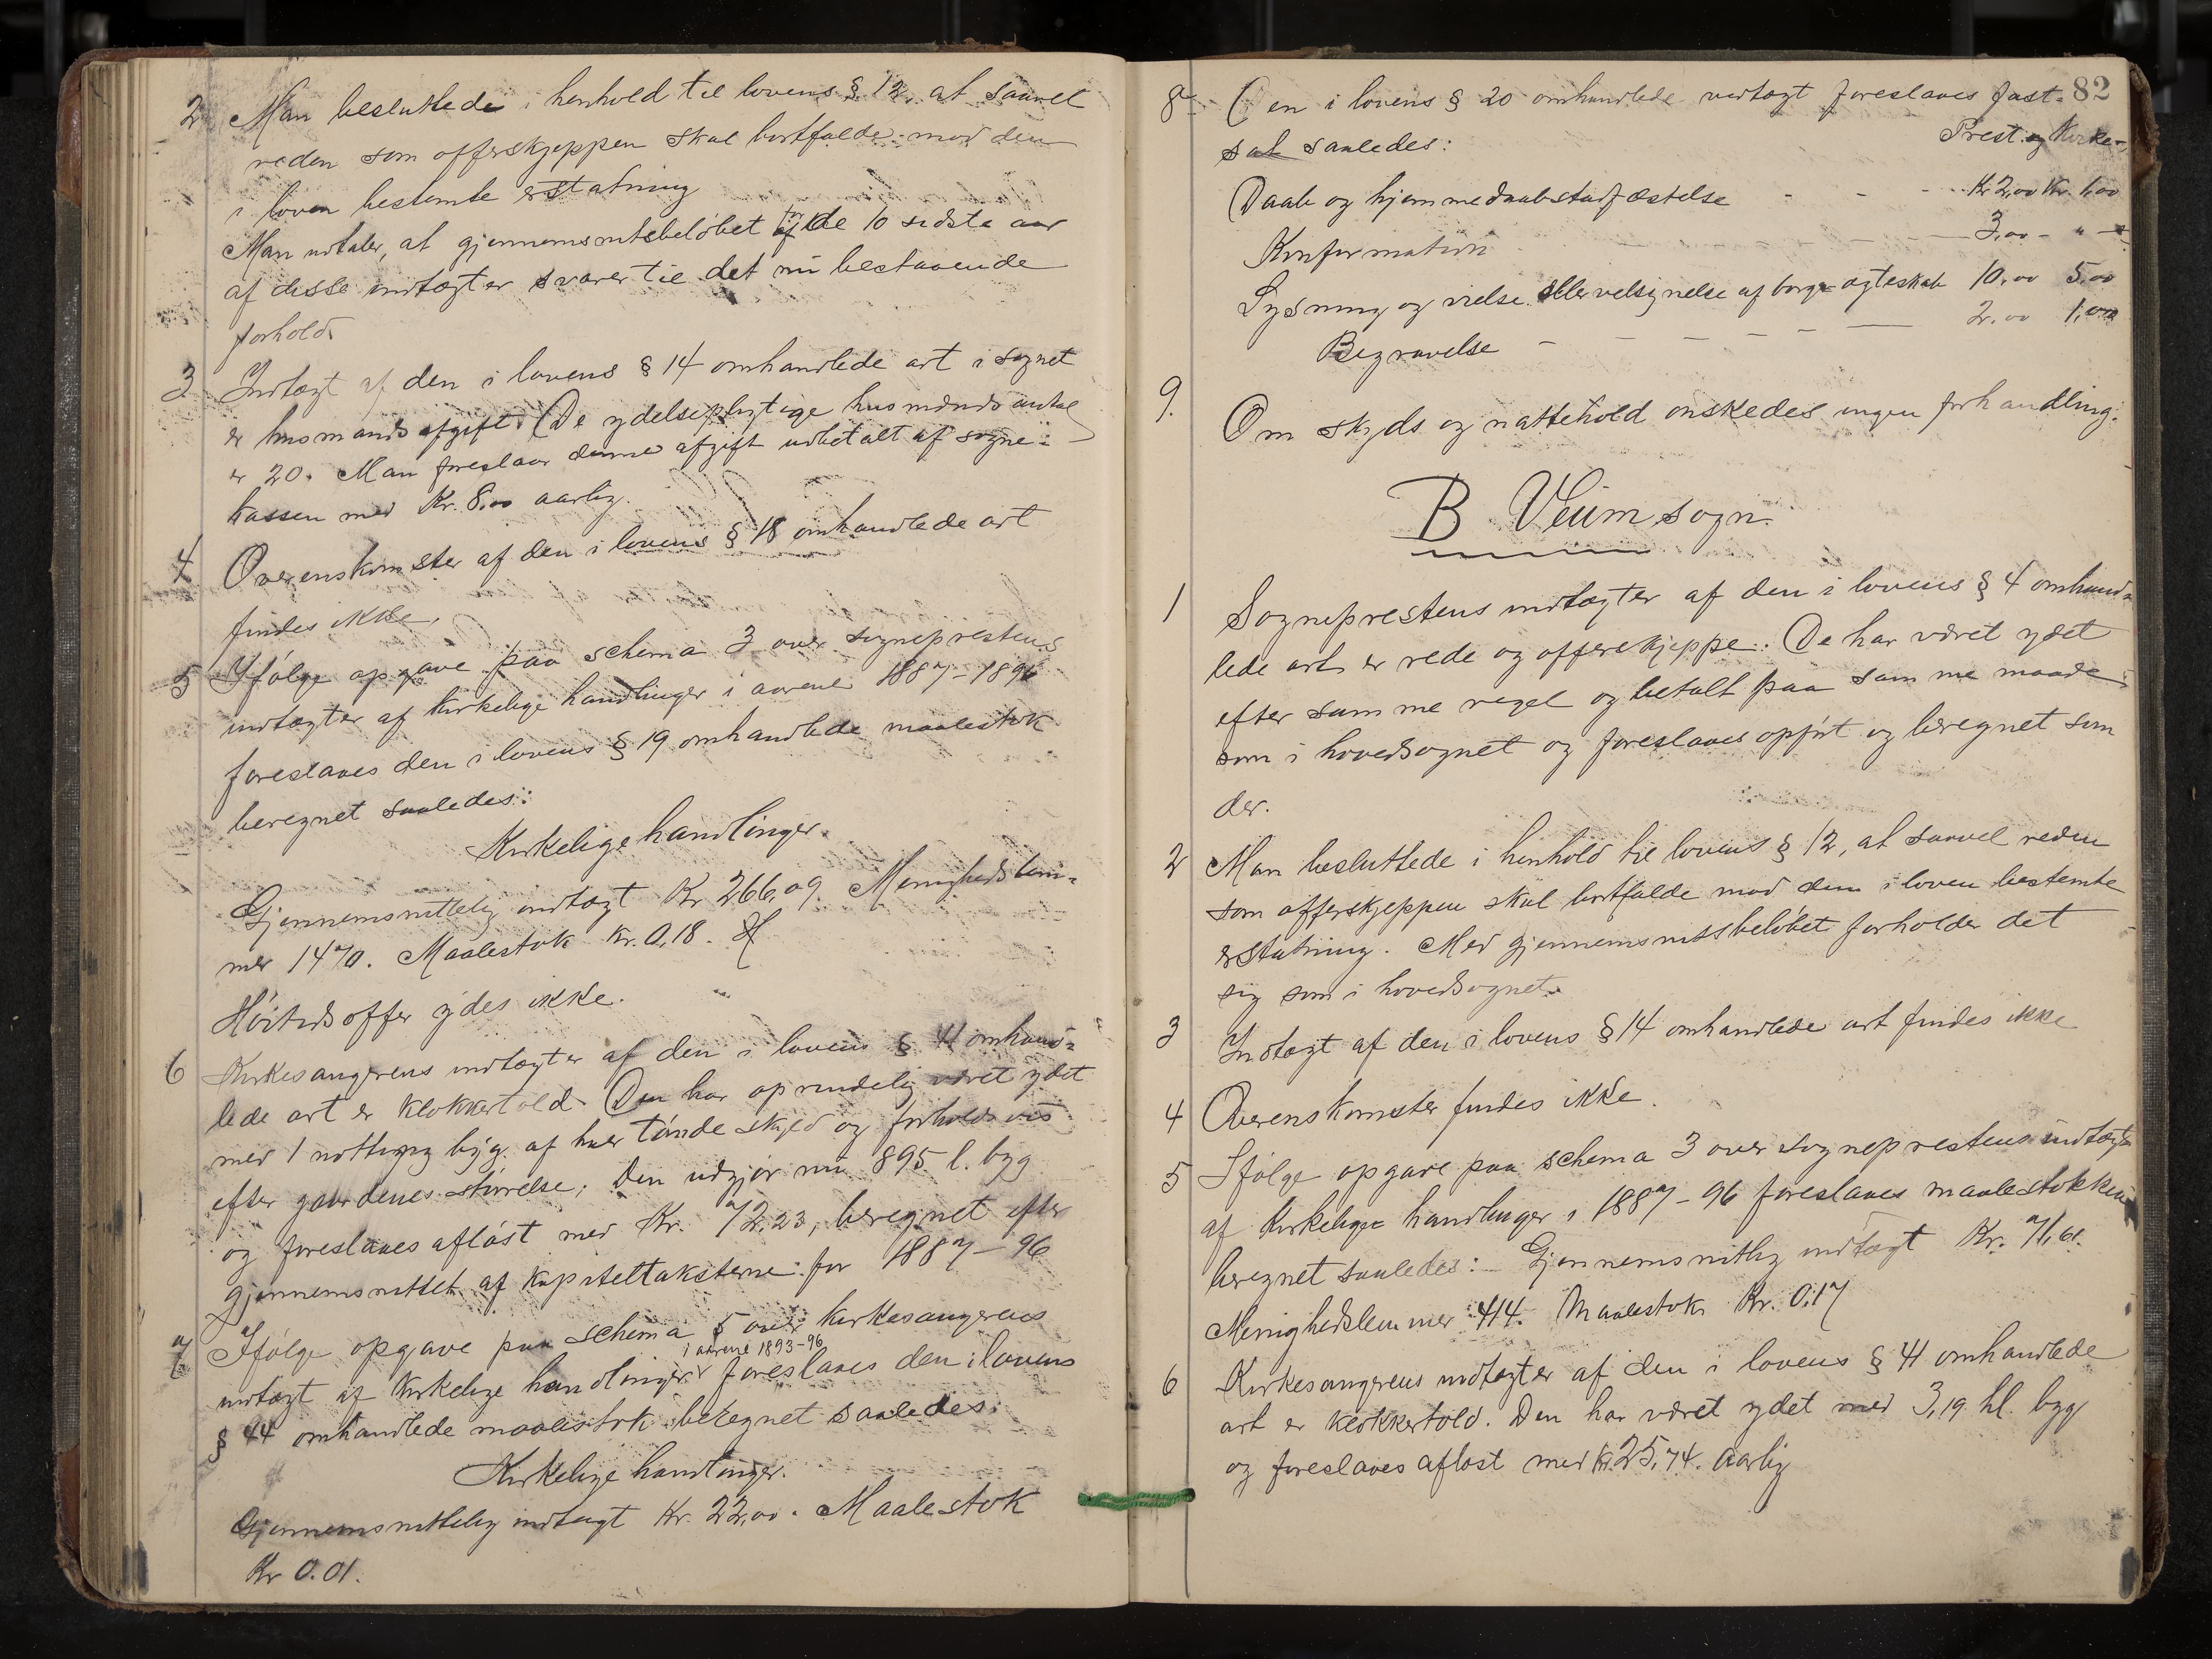 2 Man besluttede i henhold til lovens § 12, at saavel
reden som offerskjeppen skal bortfalde mod den
i loven bestemte erstatning
Man udtaler, at gjennemsnitsbeløbet for de 10 sidste aar
af disse indtægter svarer til det nu bestaaende
forhold.
3 Indtægt af den i lovens § 14 omhandlede art i sognet
er husmandsafgift. De ydelsespligtige husmænds antal
er 20. Man foreslaar denne afgift udbetalt af sogne-
kassen med Kr. 8,00 aarlig.
4 Overenskomster af den i lovens § 18 omhandlede art
findes ikke.
5 Ifølge opgave paa schema 3 over sogneprestens
indtægter af kirkelige handlinger i aarene 1887-1896
foreslaaes den i lovens § 19 omhandlede maalestok
beregnet saaledes:
Kirkelige handlinger.
Gjennemsnittelig indtægt Kr 266,09. Menighedslem-
mer 1470. Maalestok Kr. 0,18.
Høitidsoffer ydes ikke.
6 Kirkesangerens indtægter af den i lovens § 41 omhand-
lede art er klokkertold. Den har oprindelig været ydet
med 1 notting byg af hver tønde skyld og forholdsvis
efter gaardenes størrelse; Den udgjør nu 895 l. byg
og foreslaaes afløst med Kr. 72,23, beregnet efter
gjennemsnittet af kapiteltaksterne for 1887-96
7 Ifølge opgave paa schema 5 over kirkesangerens
i aarene 1893-96
indtægt af kirkelige handlinger foreslaaes den i lovens
§ 44 omhandlede maalestok beregnet saaledes:
Kirkelige handlinger.
Gjennemsnittelig indtægt Kr. 22,00. Maalestok
Kr 0.01.
82
8 Den i lovens § 20 omhandlede vedtægt foreslaaes fast-
sat saaledes: Prest. og Kirke-
Daab og hjemmedaabstadfæstelse - - - Kr 2,00 Kr. 1,00
Konfirmation 3,00 - " -
Lysning og vielse eller velsignelse af borg. ægteskab 10,00 5,00
Begravelse - - - - 2,00 1,00
9. Om skyds og nattehold ønskedes ingen forhandling.
B Veum sogn.
1 Sogneprestens indtægter af den i lovens § 4 omhand-
lede art er rede og offerskjeppe. De har været ydet
efter samme regel og betalt paa samme maade
som i hovedsognet og foreslaaes opført og beregnet som
der.
2 Man besluttede i henhold til lovens § 12, at saavel reden
som offerskjeppen skal bortfalde mod den i loven bestemte
erstatning. Med gjennemsnitsbeløbet forholder det
sig som i hovedsognet.
3 Indtægt af den i lovens § 14 omhandlede art findes ikke
4 Overenskomster findes ikke.
5 Ifølge opgave paa schema 3 over sogneprestens indtægt
af kirkelige handlinger i 1887-96 foreslaaes maalestokken
beregnet saaledes: - Gjennemsnitlig indtægt Kr. 71,61.
Menighedslemmer 414. Maalestok Kr. 0,17
6 Kirkesangerens indtægter af den i lovens § 41 omhandlede
art er klokkertold. Den har været ydet med 3,19 hl. byg
og foreslaaes afløst med Kr. 25,74. aarlig